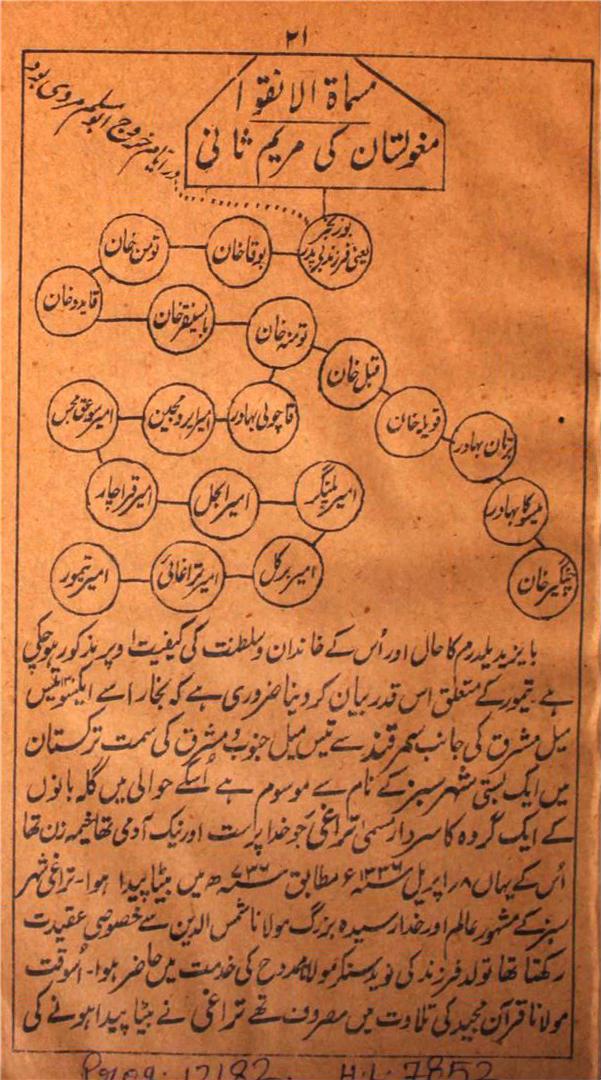 ۲۱
مسماۃ الانقوا
مغولستان کی مریم ثانی
در ایام خروج ابومسلم مروی بود
بوزنجر
یعنی فرزند بی پدر
بوقا خان
تومن خان
قایدو خان
بایسنقر خان
تومنہ خان
قبل خان
قویلہ خان
برتان بہادر
میسوکا بہادر
چنگیز خان
قاچولی بہادر
امیر ایرومجین
امیر سوغو
امیر قراچار
امیر الجل
امیر
امیر برکل
امیر تراغائی
امیر تیمور
بایزید یلدرم کا حال اور اُس کے خاندان و سلطنت کی کیفیت اوپر مذکور ہو چکی
ہے۔ تیمور کے متعلق اس قدر بیان کر دینا ضروری ہے کہ بخارا سے ایکسو تیس ۱۳۰
میل مشرق کی جانب سمرقند سے تیس میل جنوب و مشرق کی سمت ترکستان
میں ایک بستی شہر سبز کے نام سے موسوم ہے اُسکے حوالی میں گلہ بانوں
کے ایک گروہ کا سردار مسمیٰ تراغی جو خدا پرست اور نیک آدمی تھا خیمہ زن تھا
اُس کے یہاں ۸ اپریل سنہ ۱۳۳۶ء مطابق سنہ ۷۳۶ھ میں بیٹا پیدا ہوا۔ تراغی شہر
سبز کے مشہور عالم اور خدا رسیدہ بزرگ مولانا شمس الدین سے خصوصی عقیدت
رکھتا تھا تولد فرزند کی نوید سنکر مولانا ممدوح کی خدمت میں حاضر ہوا۔ اُسوقت
مولانا قرآن مجید کی تلاوت میں مصروف تھے تراغی نے بیٹا پیدا ہونے کی
Prog. 12182. H.L. 7852